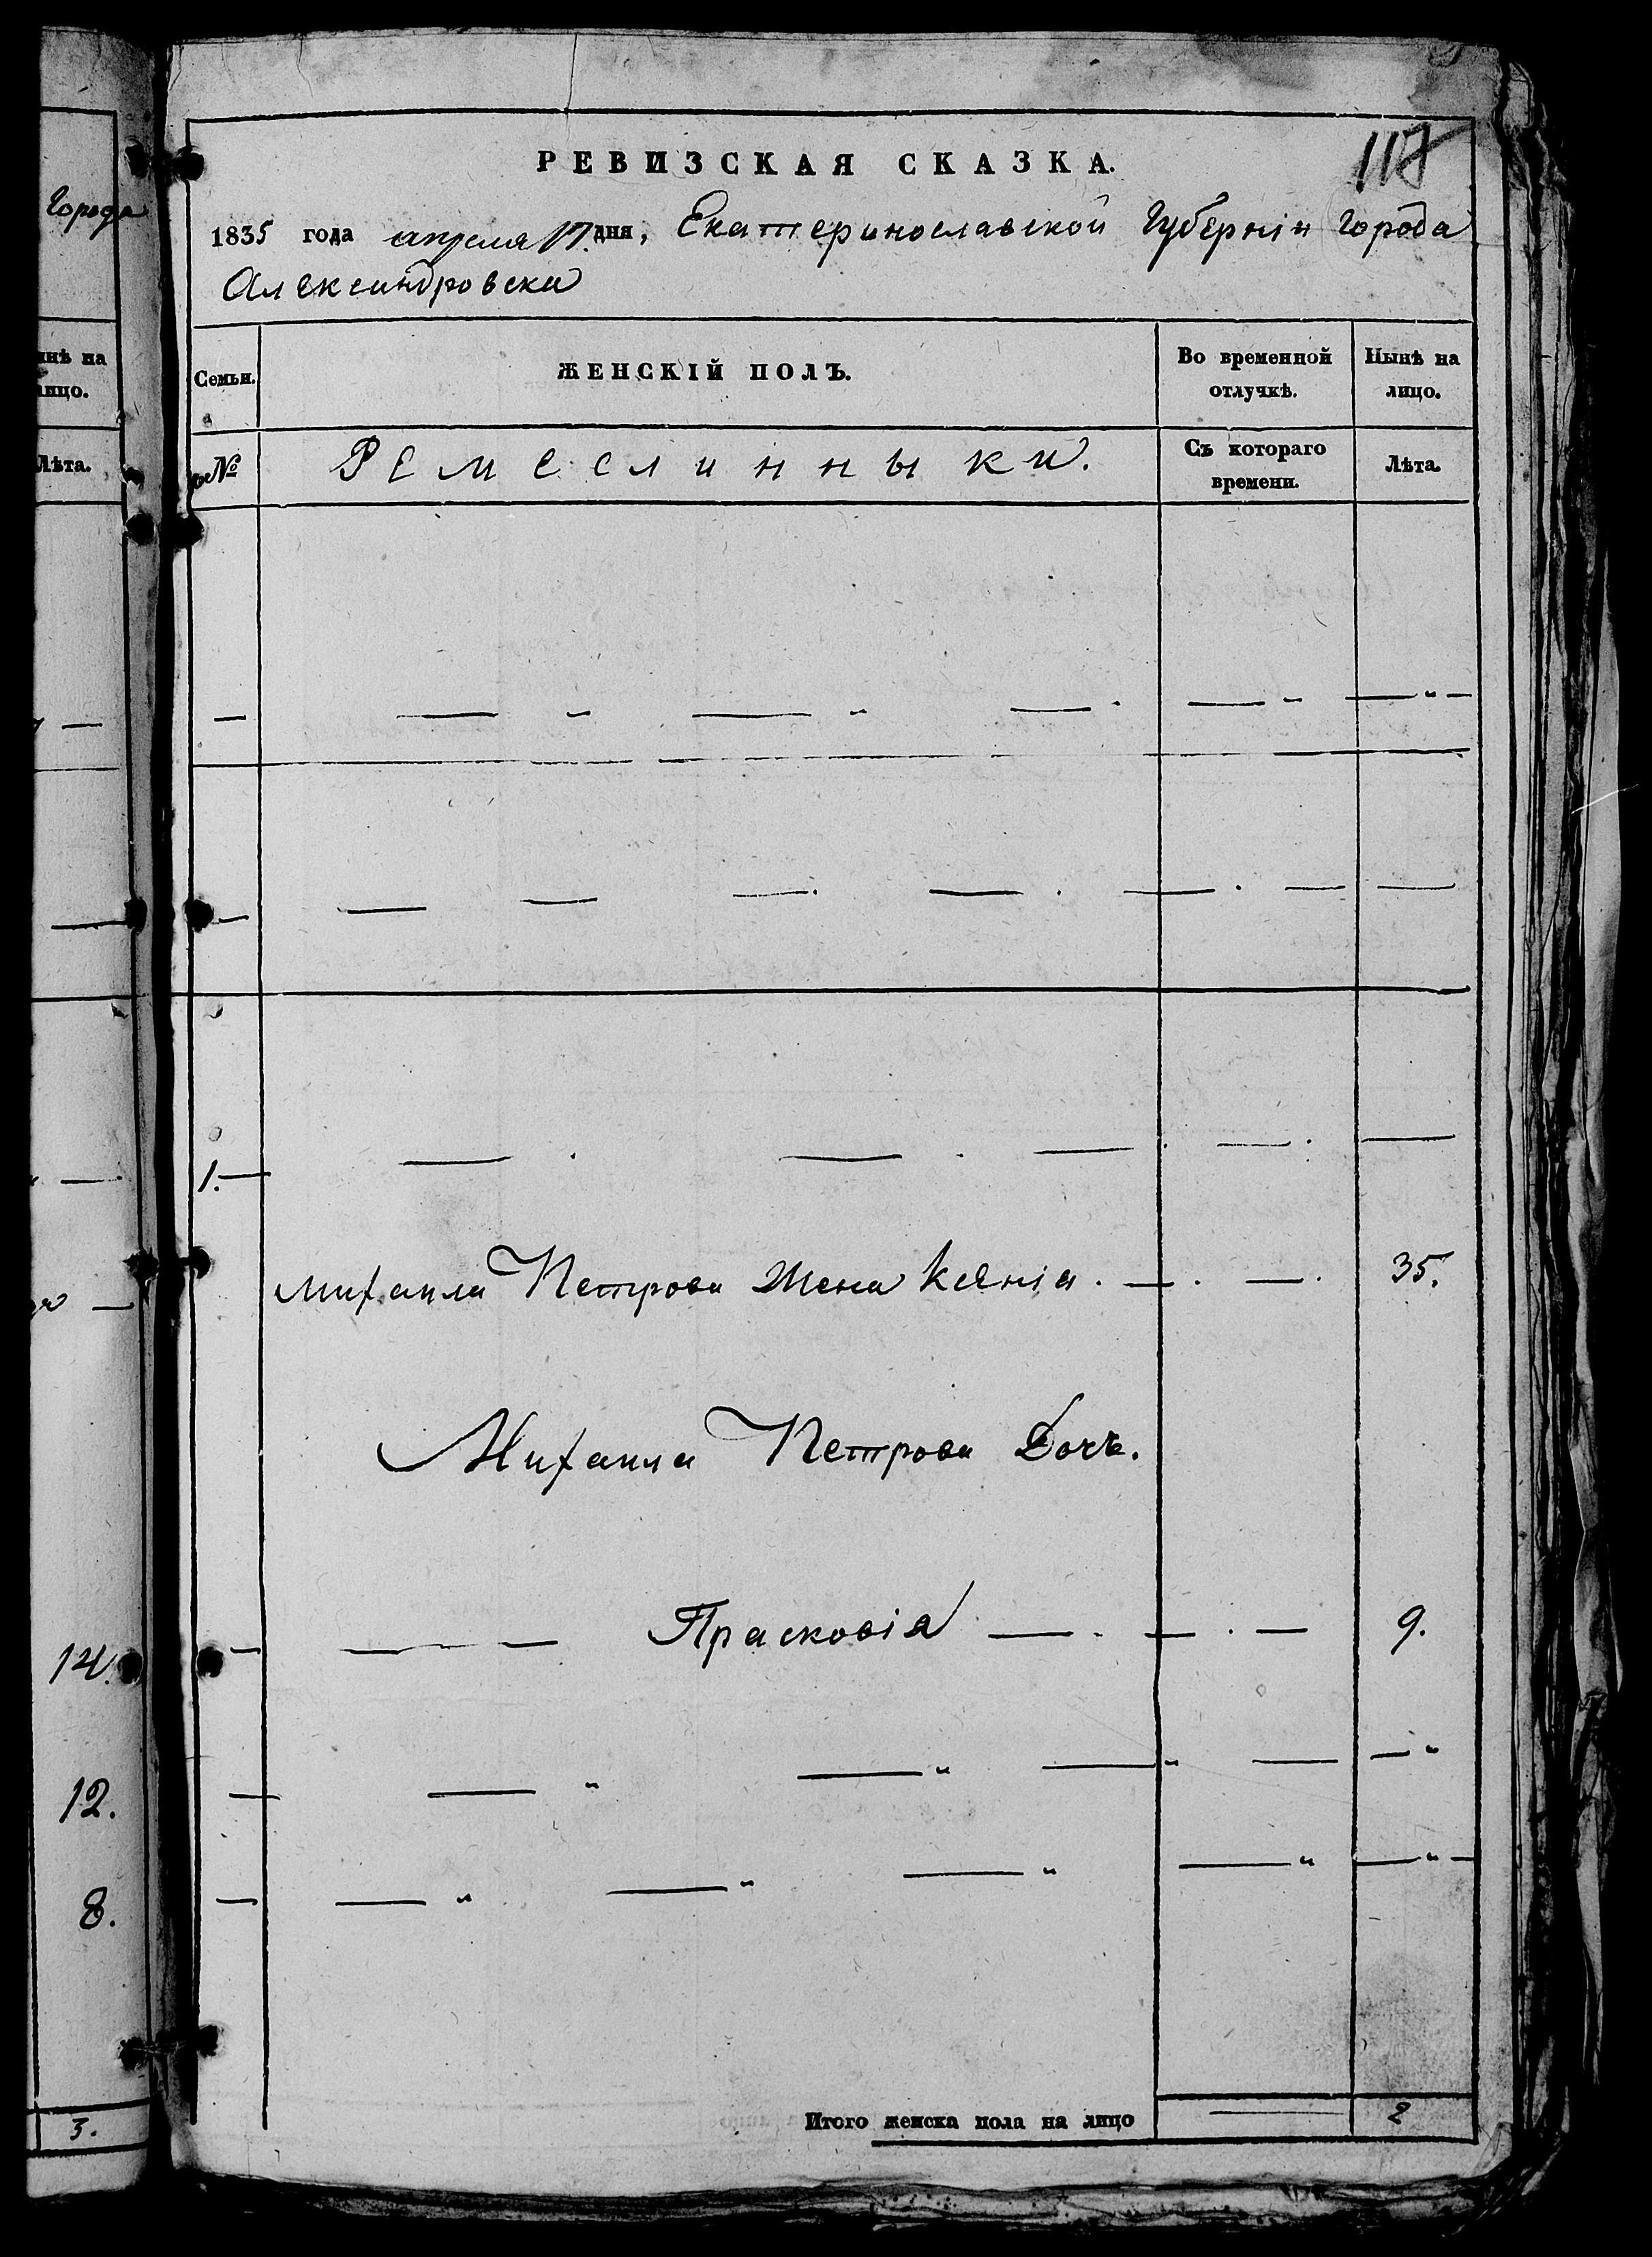 Города
нѣ на
лицо.
Лѣта.
14.
12.
8.
3.
РЕВИЗСКАЯ СКАЗКА.
1835 года апреля 17. дня, Екатеринославской Губерніи Города
Александровска
Семьи.
ЖЕНСКІЙ ПОЛЪ.
Во временной
отлучкѣ.
Нынѣ на
лицо.
№
Ремеслинныки.
Съ котораго
времени.
Лѣта.
1.
Михаила Петрова Жена Ксенія. 35.
Михаила Петрова Дочь.
Прасковія 9.
Итого женска пола на лицо 2